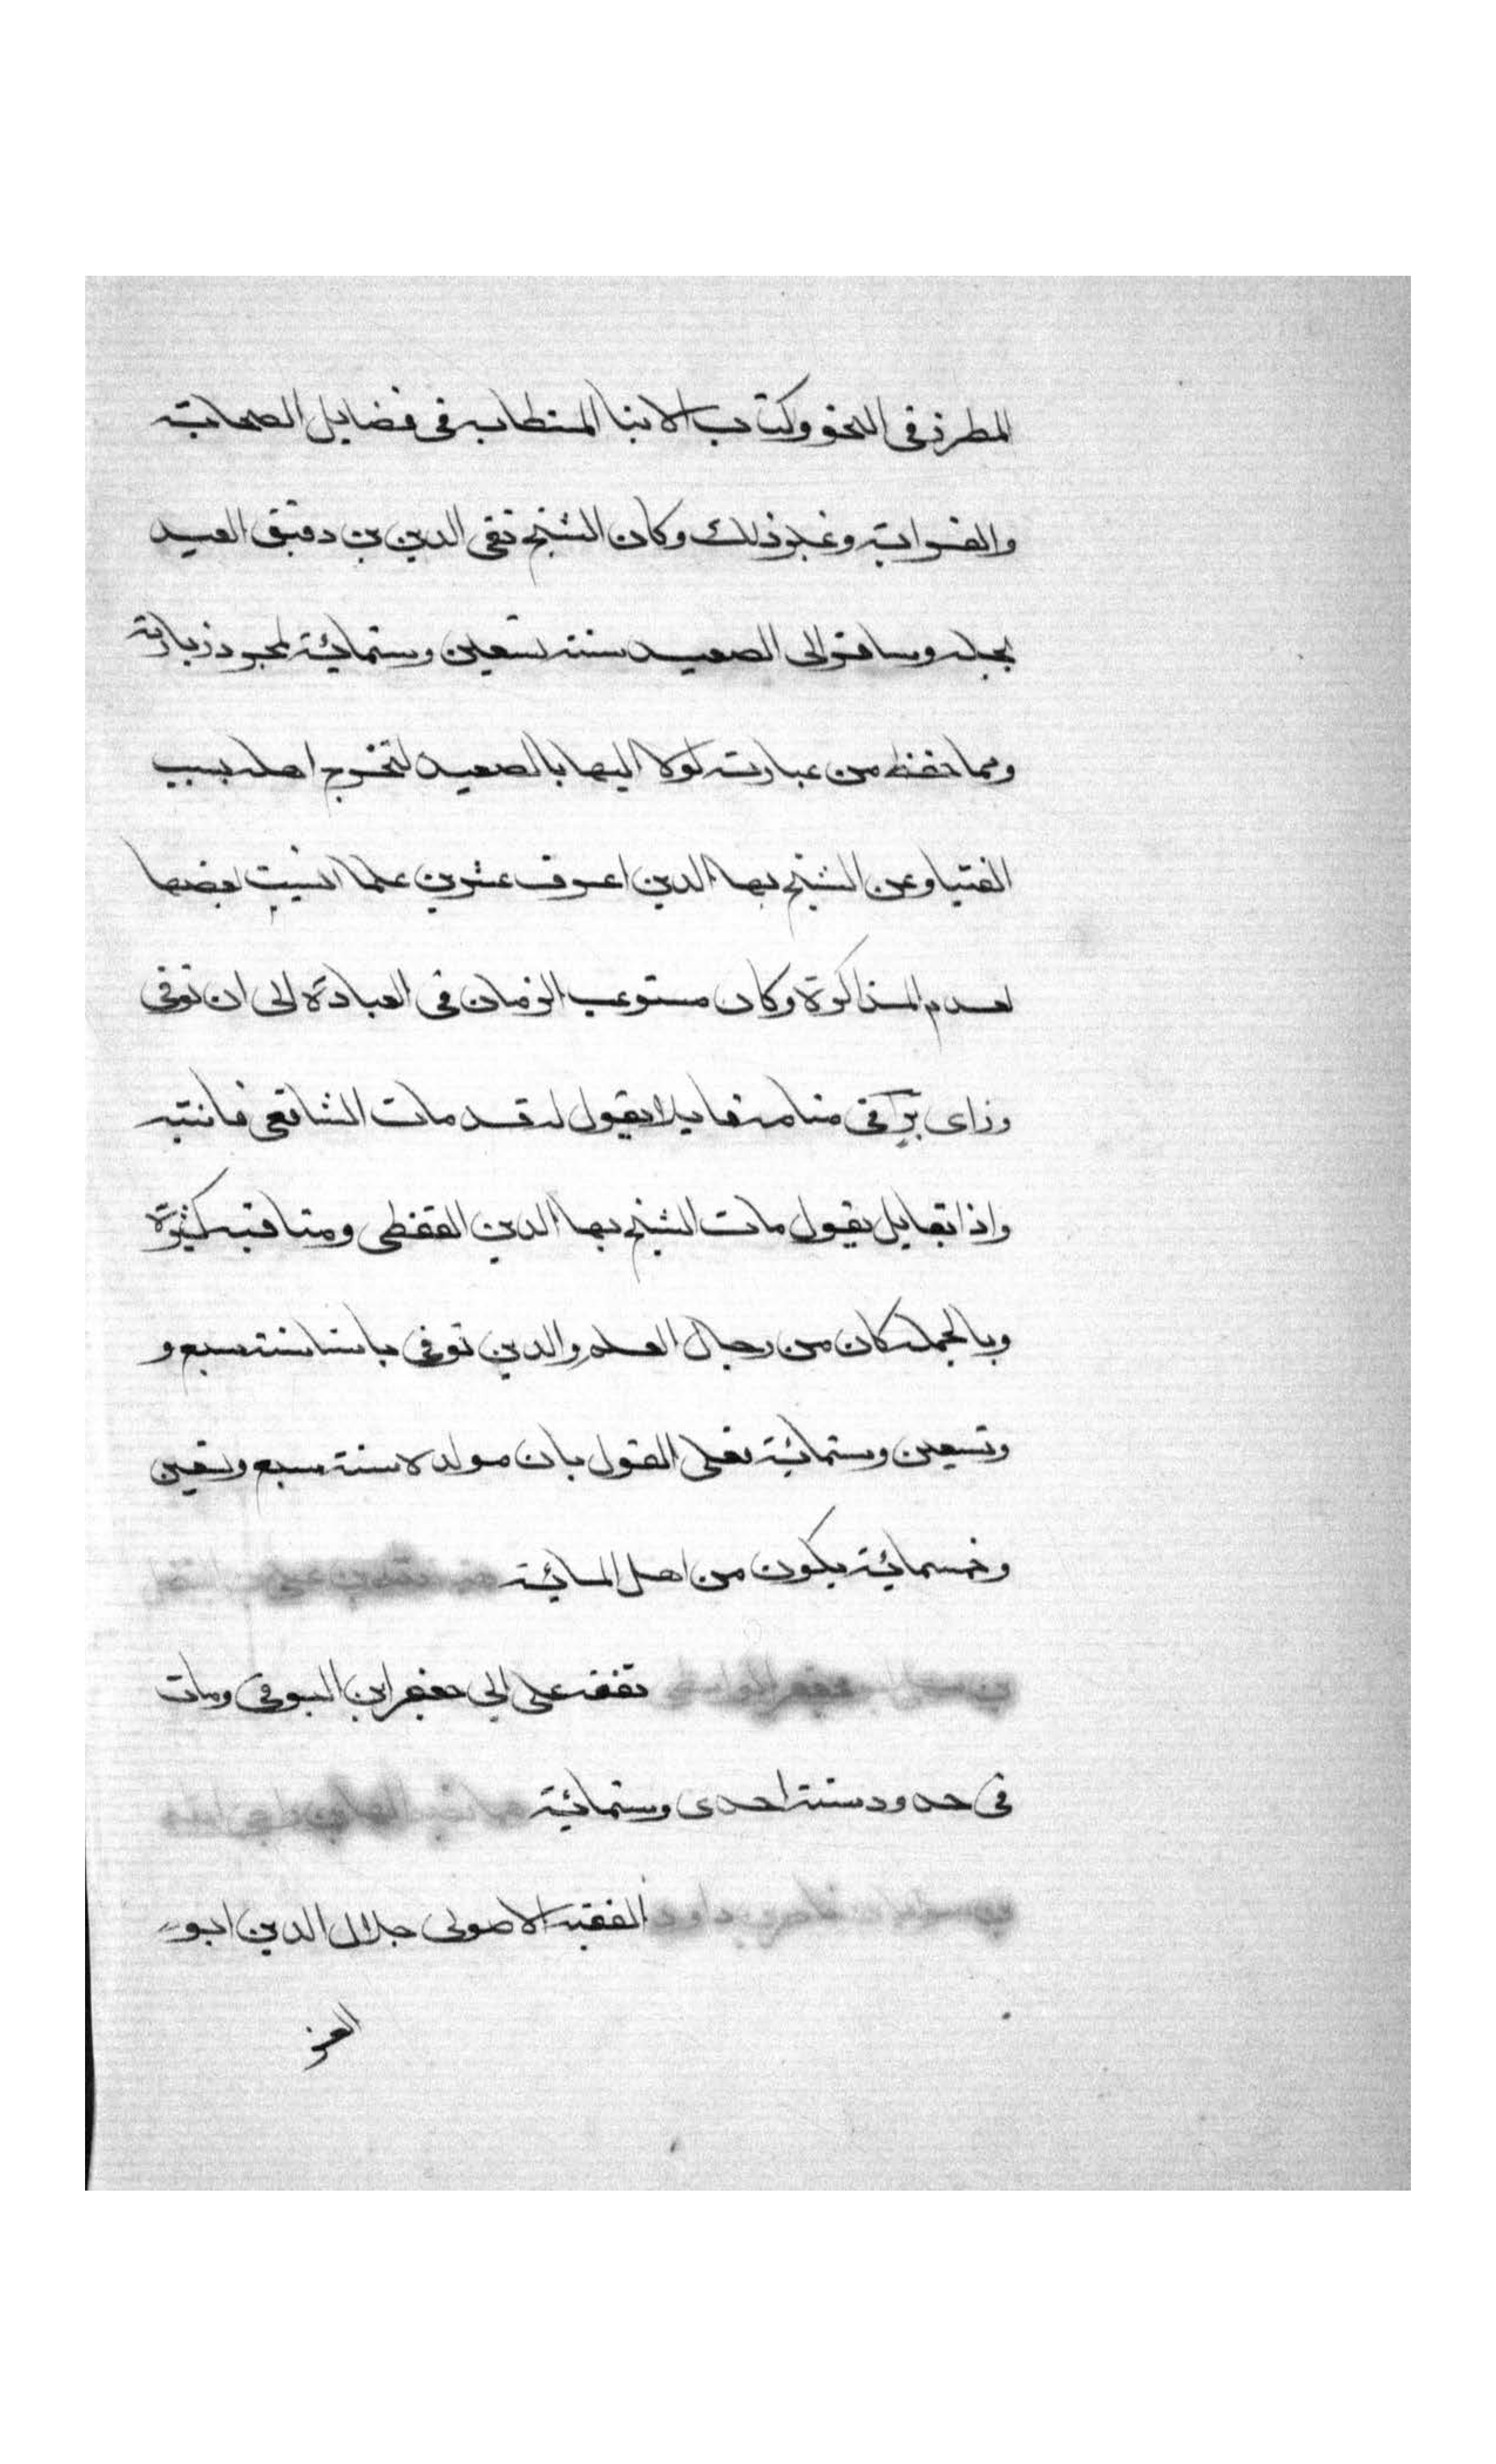 المطرز فى النحو وكتاب الانبا المستطابه فى فضايل الصحابة
والقرابة وغير ذلك وكان الشيخ تقى الدين بن دقيق العيد
يجله وسافر الى الصعيد سنة تسعين وستمائة لمجرد زيارته
ومما حفظ من عبارته لولا البها بالصعيد لتخرج اهله بسبب
الفتيا وعن الشيخ بها الدين اعرف عشرين علما انسيت بعضها
لعدم المذاكرة وكان مستوعب الزمان فى العبادة الى ان توفى
وراى فى منامه قايلا يقول له قد مات الشافعى فانتبه
واذا بقايل يقول مات الشيخ بها الدين القفطى ومناقبه كثيرة
وبالجملة كان من رجال العلم والدين توفى باسنا سنة سبع و
وتسعين وستمائة فعلى القول بان مولده سنة سبع وتسعين
وخمسمائة يكون من اهل المائة
تفقه على ابى جعفر ابن البوقى ومات
فى حدود سنة احدى وستمائة
الفقيه الاصولى جلال الدين ابو
العز